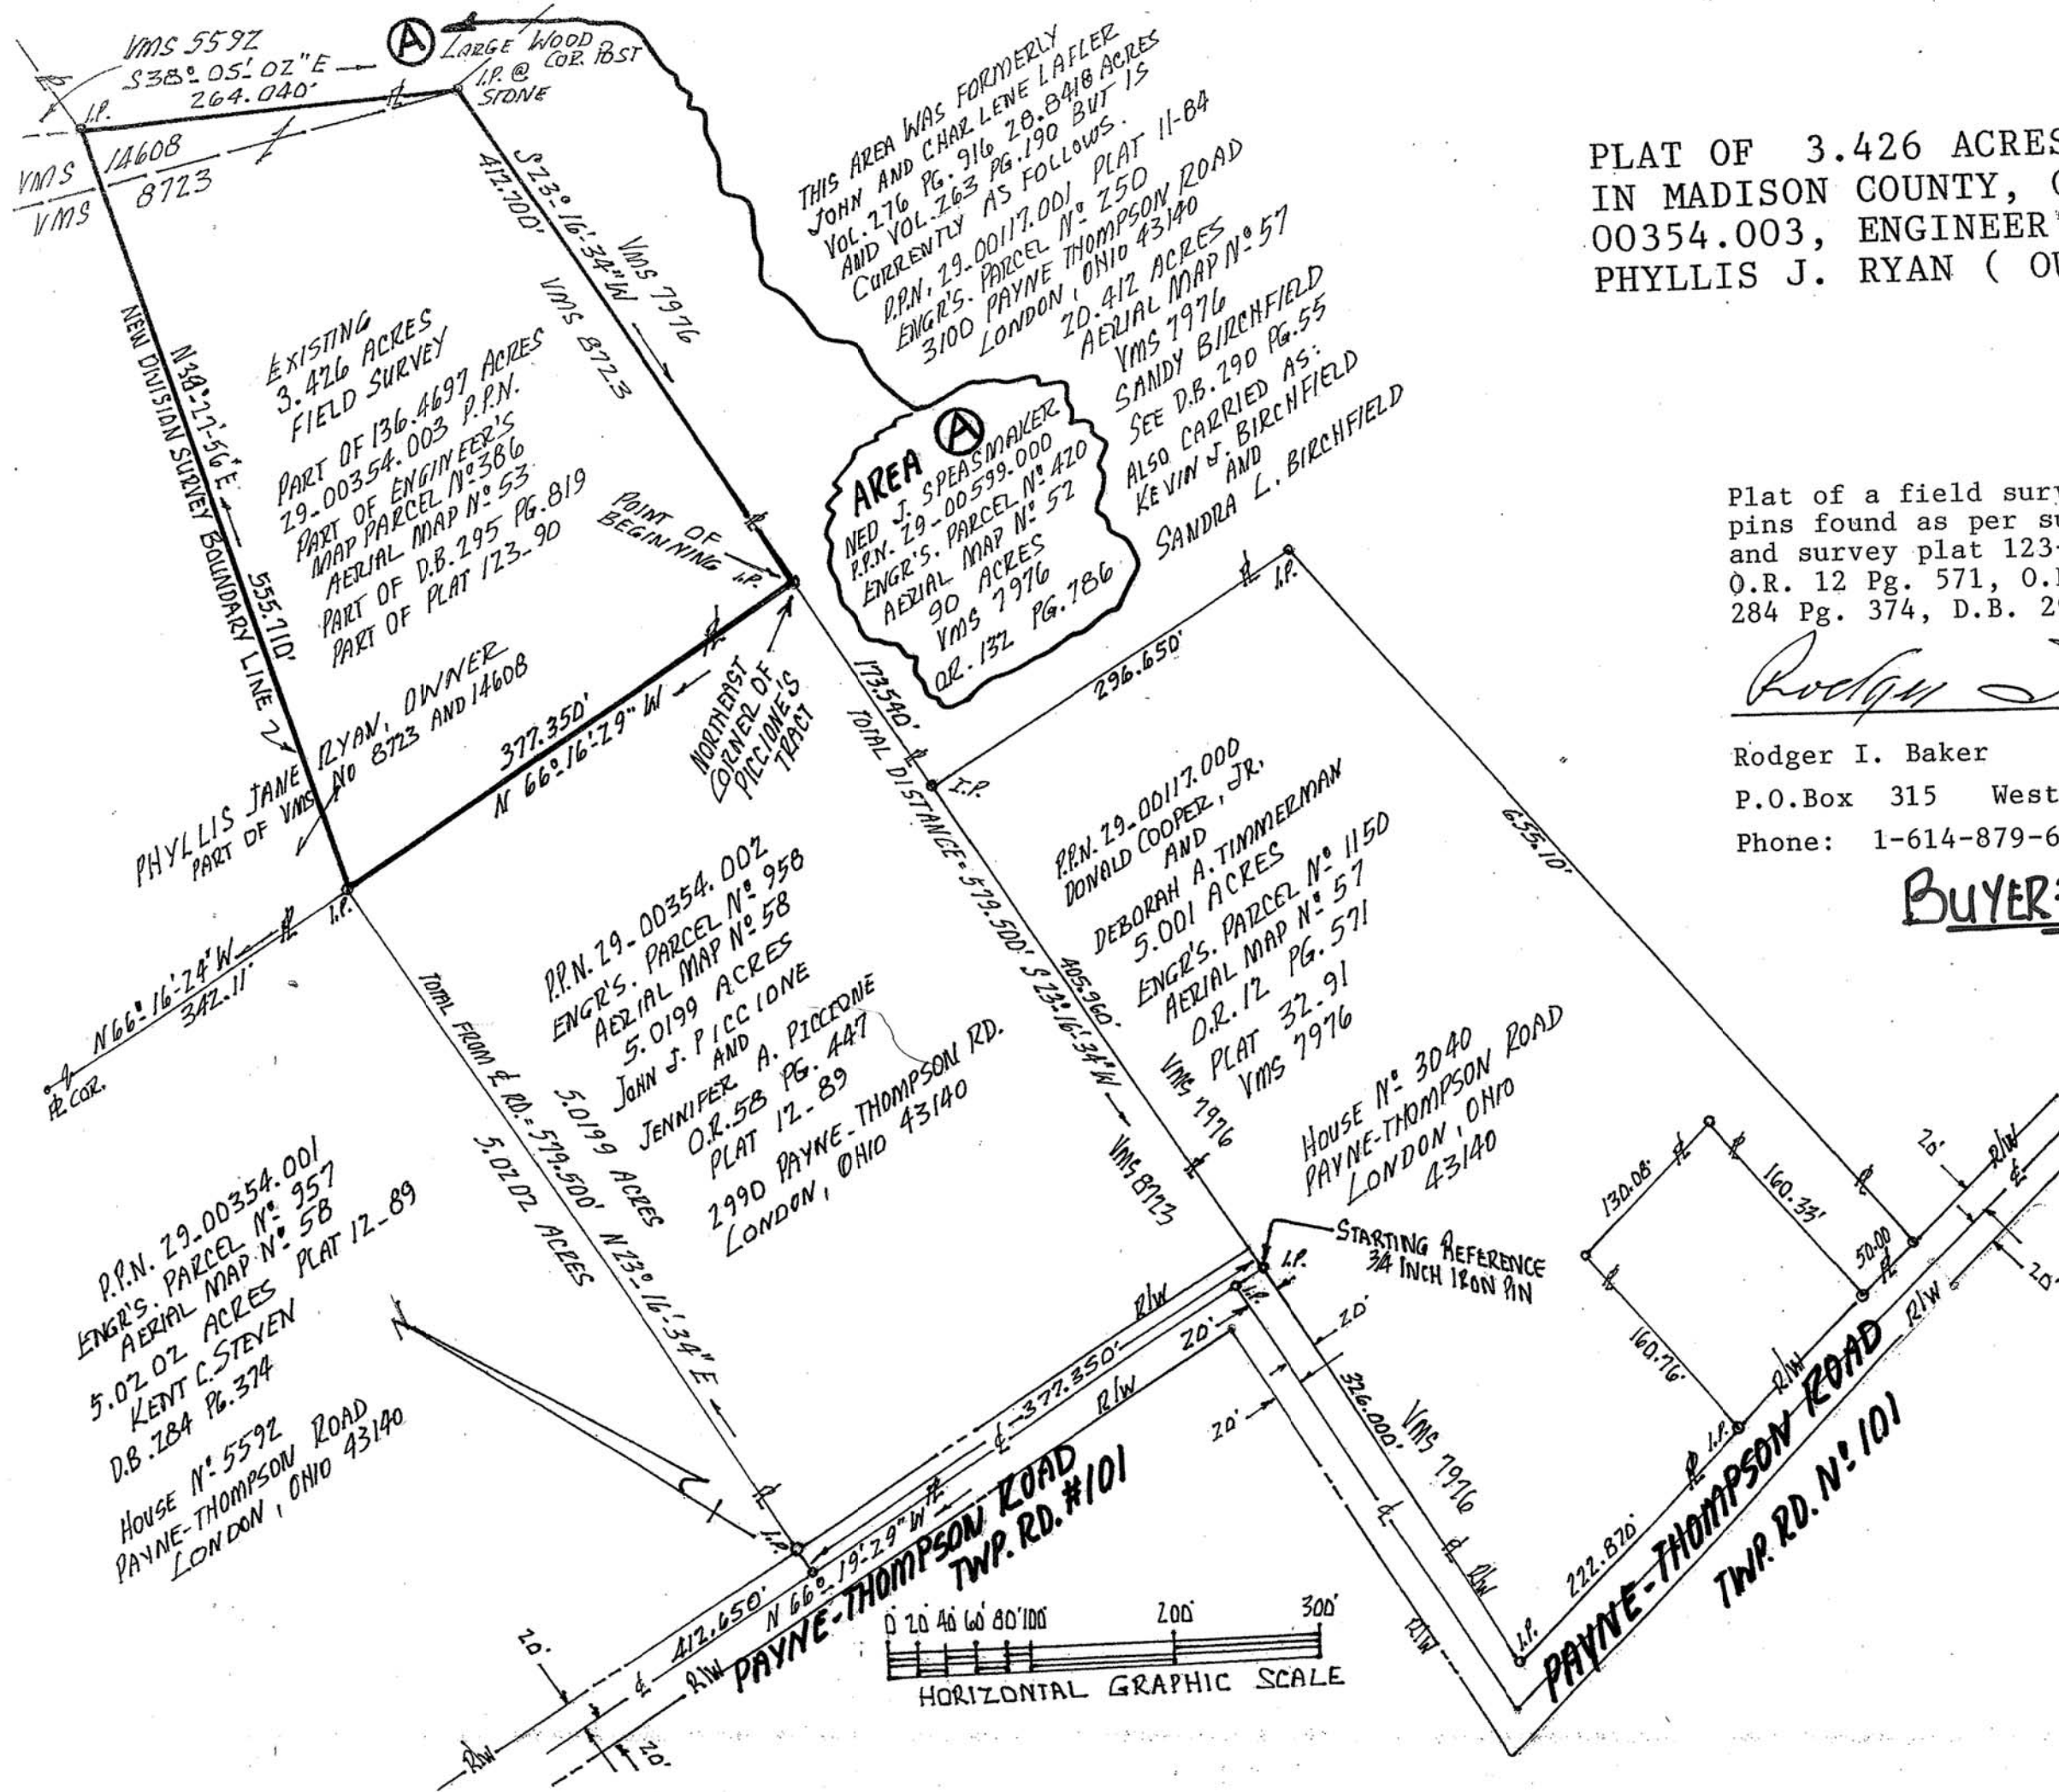 VMS 5592
S38° 05' 02" E
264.040'
A
LARGE WOOD
COR. POST
I.P. @
STONE
I.P.
VMS 14608
VMS 8723
S23°-16'-34"W
412.700'
VMS 7976
VMS 8723
NEW DIVISION SURVEY BOUNDARY LINE
555.710'
EXISTING
3.426 ACRES
FIELD SURVEY
PART OF 136.4697 ACRES
29-00354.003 P.P.N.
PART OF ENGINEER'S
MAP PARCEL Nº 386
AERIAL MAP Nº 53
PART OF D.B. 295 PG. 819
PART OF PLAT 123-90
POINT OF
BEGINNING I.P.
PHYLLIS JANE RYAN, OWNER
PART OF VMS NO 8723 AND 14608
377.350'
N 66°-16'-29" W
NORTHEAST
CORNER OF
PICCIONE'S
TRACT
THIS AREA WAS FORMERLY
JOHN AND CHARLENE LAFLER
VOL. 276 PG. 916 28.8418 ACRES
AND VOL. 263 PG. 190 BUT IS
CURRENTLY AS FOLLOWS.
P.P.N. 29-00117.001 PLAT 11-84
ENGR'S. PARCEL Nº 250
3100 PAYNE THOMPSON ROAD
LONDON, OHIO 43140
20.412 ACRES
AERIAL MAP Nº 57
VMS 7976
SANDY BIRCHFIELD
SEE D.B. 290 PG. 55
ALSO CARRIED AS:
KEVIN J. BIRCHFIELD
AND
SANDRA L. BIRCHFIELD
AREA A
NED J. SPEASMAKER
P.P.N. 29-00599.000
ENGR'S. PARCEL Nº 420
AERIAL MAP Nº 52
90 ACRES
VMS 7976
OR. 132 PG. 786
PLAT OF 3.426 ACRES
IN MADISON COUNTY,
00354.003, ENGINEER'
PHYLLIS J. RYAN (
Plat of a field
pins found as per
and survey plat 123-
O.R. 12 Pg. 571,
284 Pg. 374, D.B.
Rodger I. Baker
P.O.Box 315 West
Phone: 1-614-879-6
BUYER:
173.540'
TOTAL DISTANCE = 579.500' S 23°-16'-34" W
I.P.
296.650'
I.P.
655.10'
405.960'
VMS 7976
VMS 8723
P.P.N. 29-00117.000
DONALD COOPER, JR.
AND
DEBORAH A. TIMMERMAN
5.001 ACRES
ENGR'S. PARCEL Nº 1150
AERIAL MAP Nº 57
O.R. 12 PG. 571
PLAT 32-91
VMS 7976
HOUSE Nº 3040
PAYNE-THOMPSON ROAD
LONDON, OHIO
43140
P.P.N. 29-00354.002
ENGR'S. PARCEL Nº 958
AERIAL MAP Nº 58
5.0199 ACRES
JOHN J. PICCIONE
AND
JENNIFER A. PICCIONE
O.R. 58 PG. 447
PLAT 12-89
2990 PAYNE-THOMPSON RD.
LONDON, OHIO 43140
I.P.
N66°-16'-24"W
342.11'
PL COR.
TOTAL FROM ℄ RD. = 579.500' N 23°-16'-34" E
5.0199 ACRES
5.0202 ACRES
P.P.N. 29-00354.001
ENGR'S. PARCEL Nº 957
AERIAL MAP Nº 58
5.0202 ACRES PLAT 12-89
KENT C. STEVEN
D.B. 284 PG. 374
HOUSE Nº 5592
PAYNE-THOMPSON ROAD
LONDON, OHIO 43140
STARTING REFERENCE
3/4 INCH IRON PIN
I.P.
I.P.
R/W
20'
20'
377.350'
R/W
20'
326.000'
VMS 7976
R/W
R/W
130.08'
160.33'
160.76'
50.00
20'
R/W
20'
R/W
R/W
I.P.
222.870'
I.P.
PAYNE-THOMPSON ROAD
TWP. RD. Nº 101
I.P.
412.650'
N 66°-19'-29" W
PAYNE-THOMPSON ROAD
TWP. RD. #101
20'
R/W
R/W
20'
0 20' 40' 60' 80' 100' 200' 300'
HORIZONTAL GRAPHIC SCALE